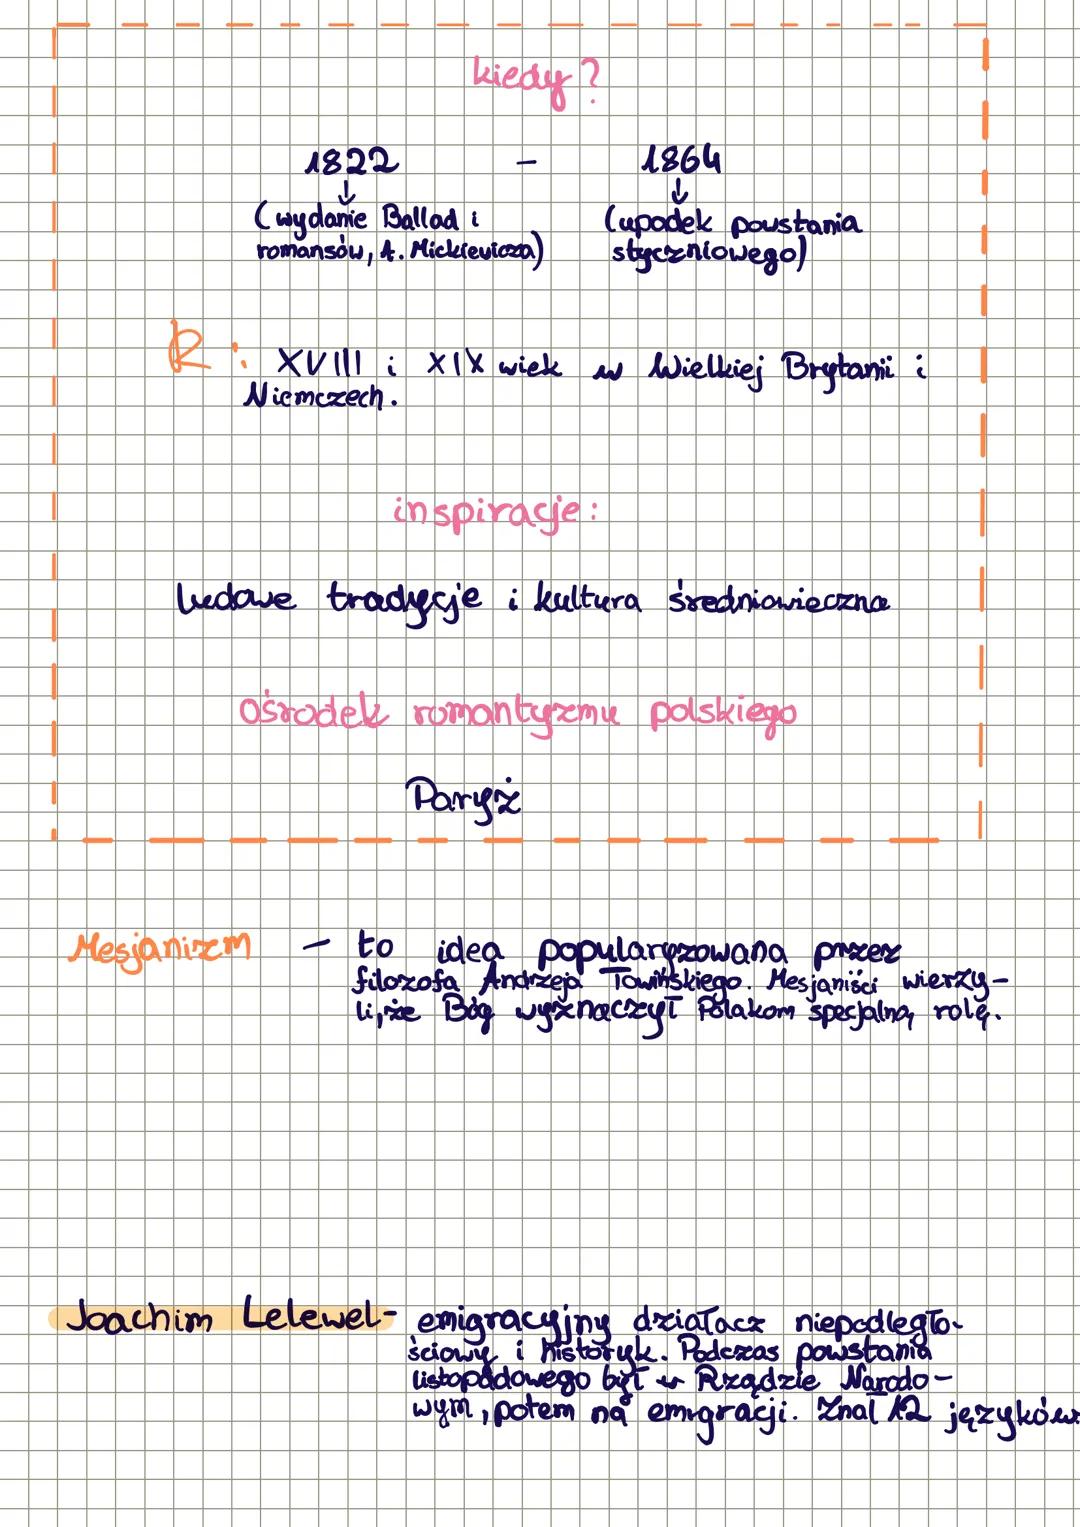 kiedy?
1822 - 1864
(wydanie Ballad i
romansów, A. Mickiewicza)
(upadek powstania
styczniowego)
R: XVIII i XIX wiek w Wielkiej Brytanii i
Niemczech.
inspiracje:
ludowe tradycje i kultura średniowieczna
Ośrodek romantyzmu polskiego
Paryż
Mesjanizm - to idea popularyzowana przez
filozofa Andrzeja Towińskiego. Mesjaniści wierzy-
li, że Bóg wyznaczył Polakom specjalną rolę.
Joachim Lelewel- emigracyjny działacz niepodległo-
ściowy i historyk. Podczas powstania
listopadowego był w Rządzie Narodo-
wym, potem na emigracji. Znał 12 języków